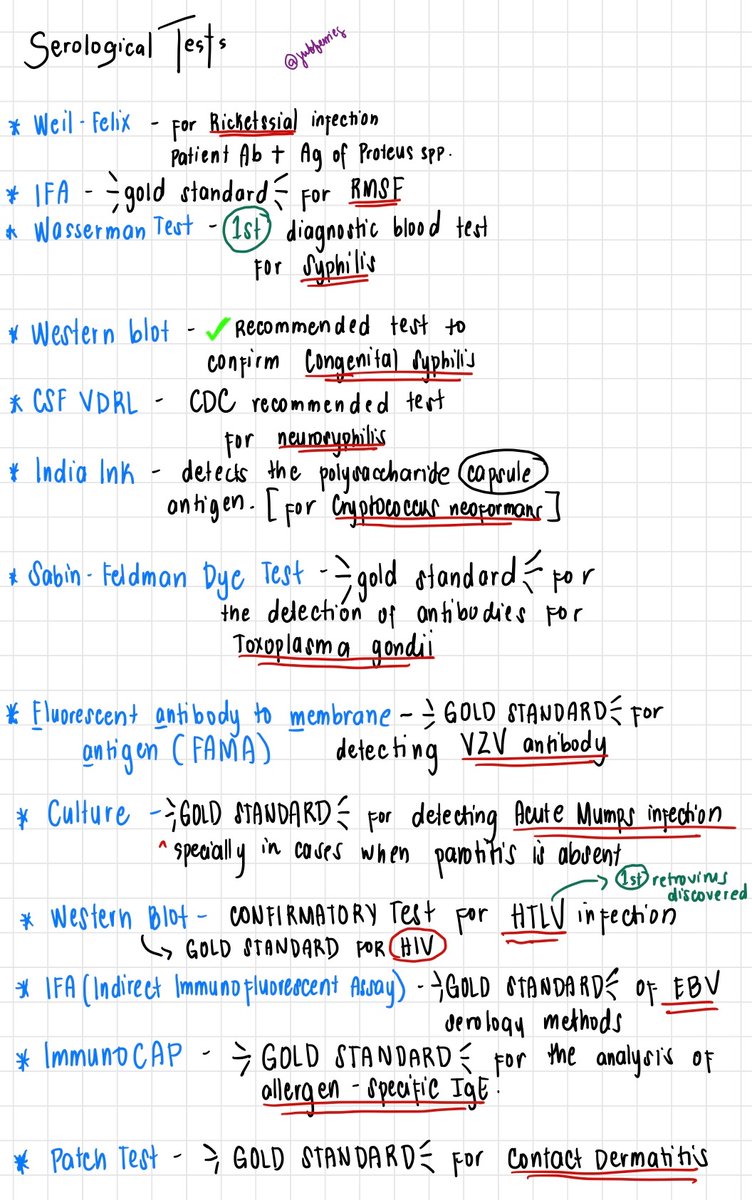 Serological Tests
* Weil-Felix - for Ricketssial infection
Patient Ab + Ag of Proteus spp.
* IFA - gold standard for RMSF
* Wasserman Test - 1st diagnostic blood test
for Syphilis
* Western blot - ✓ Recommended test to
confirm Congenital Syphilis
* CSF VDRL - CDC recommended test
for neurosyphilis
* India Ink - detects the polysaccharide capsule
antigen. [for Cryptococcus neoformans]
* Sabin-Feldman Dye Test - gold standard for
the detection of antibodies for
Toxoplasma gondii
* Fluorescent antibody to membrane - GOLD STANDARD for
antigen (FAMA) detecting VZV antibody
* Culture - GOLD STANDARD for detecting Acute Mumps infection
^ specially in cases when parotitis is absent
1st retrovirus
discovered
* Western Blot - CONFIRMATORY Test for HTLV infection
GOLD STANDARD FOR HIV
* IFA (Indirect Immunofluorescent Assay) - GOLD STANDARD OF EBV
serology methods
* ImmunoCAP - GOLD STANDARD for the analysis of
allergen-specific IgE.
* Patch Test - GOLD STANDARD for Contact Dermatitis